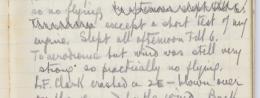 so no flying.
except a short test of my
engine. Slept all afternoon Till 6.
To aerodrome but wind was still very
strong so practically no flying.
Lf. Clark crashed a 2E – blown over